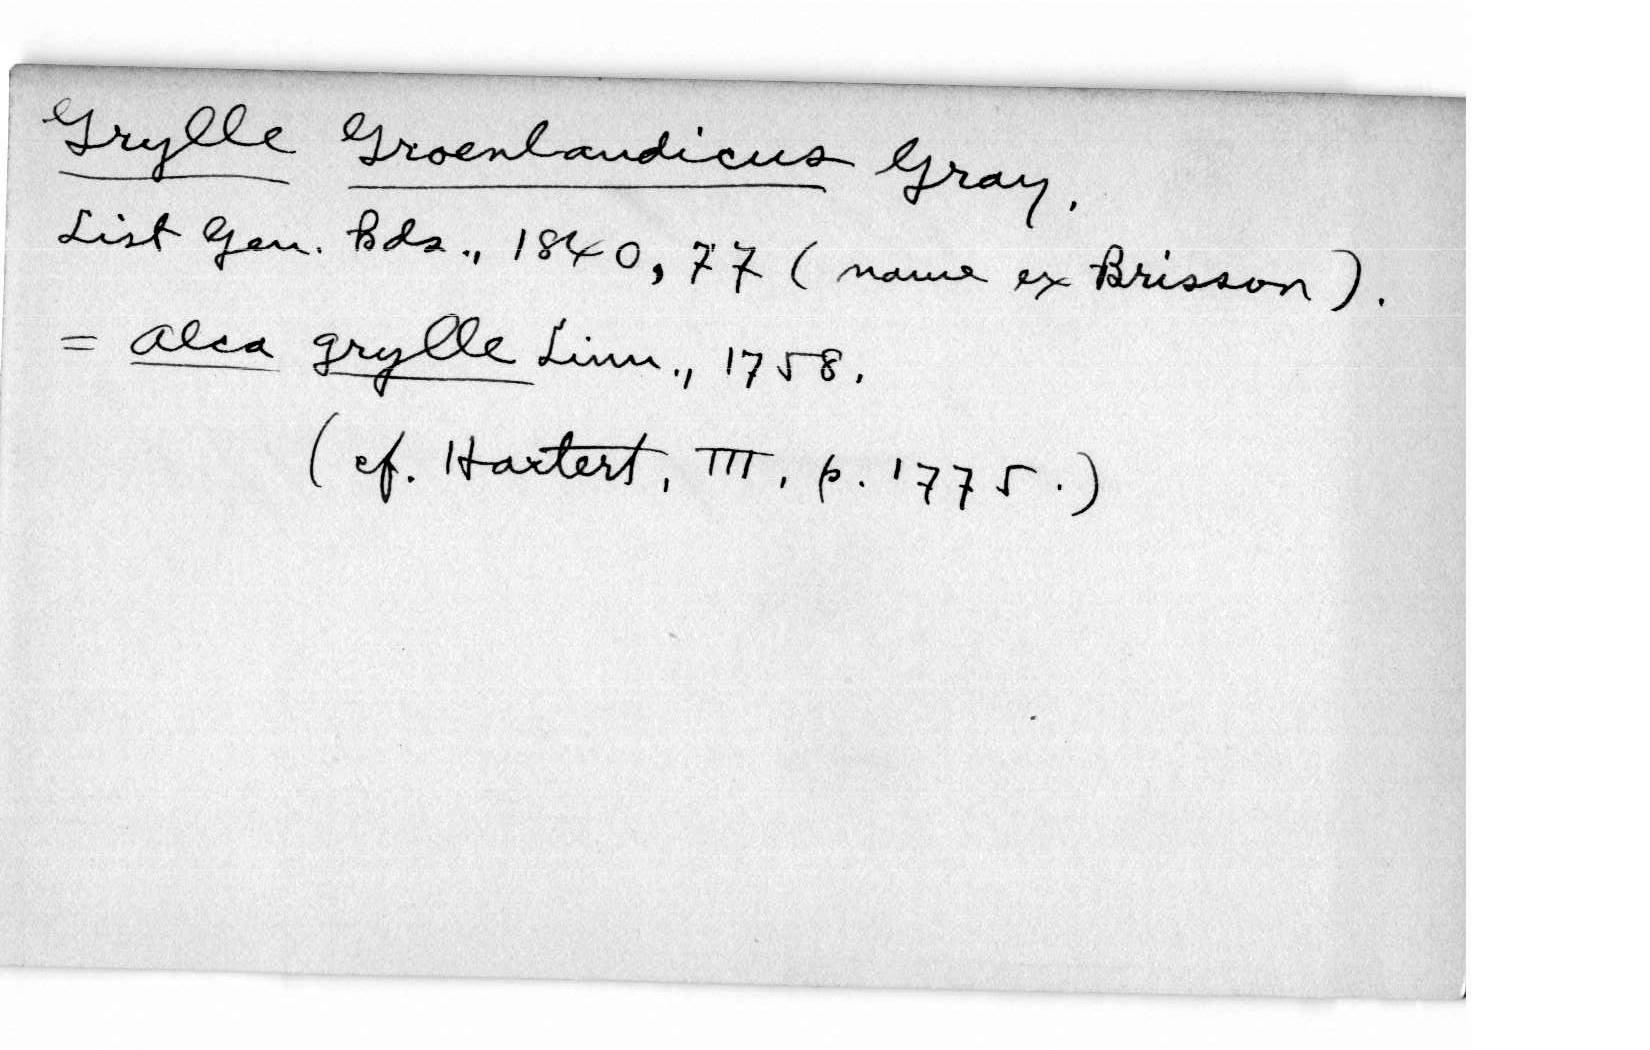 Grylle Groenlandicus Gray,
List Gen. Bds., 1840, 77 (name ex Brisson).
= Alca grylle Linn., 1758.
(cf. Hartert, III, p. 1775.)